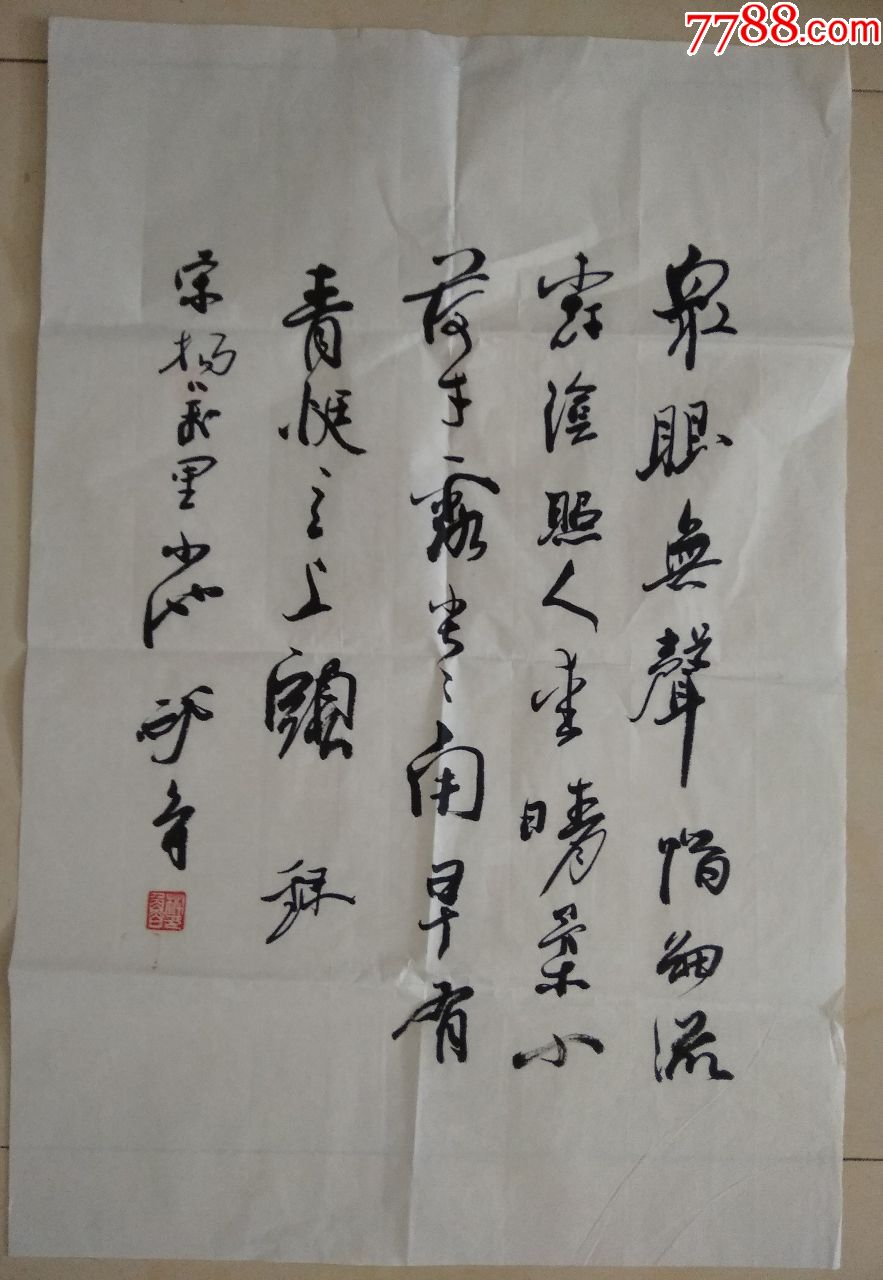 7788.com
泉眼無聲惜細流
樹陰照人愛晴柔小
荷才露尖々角早有
青蜓立上頭 錄
宋楊萬里小池